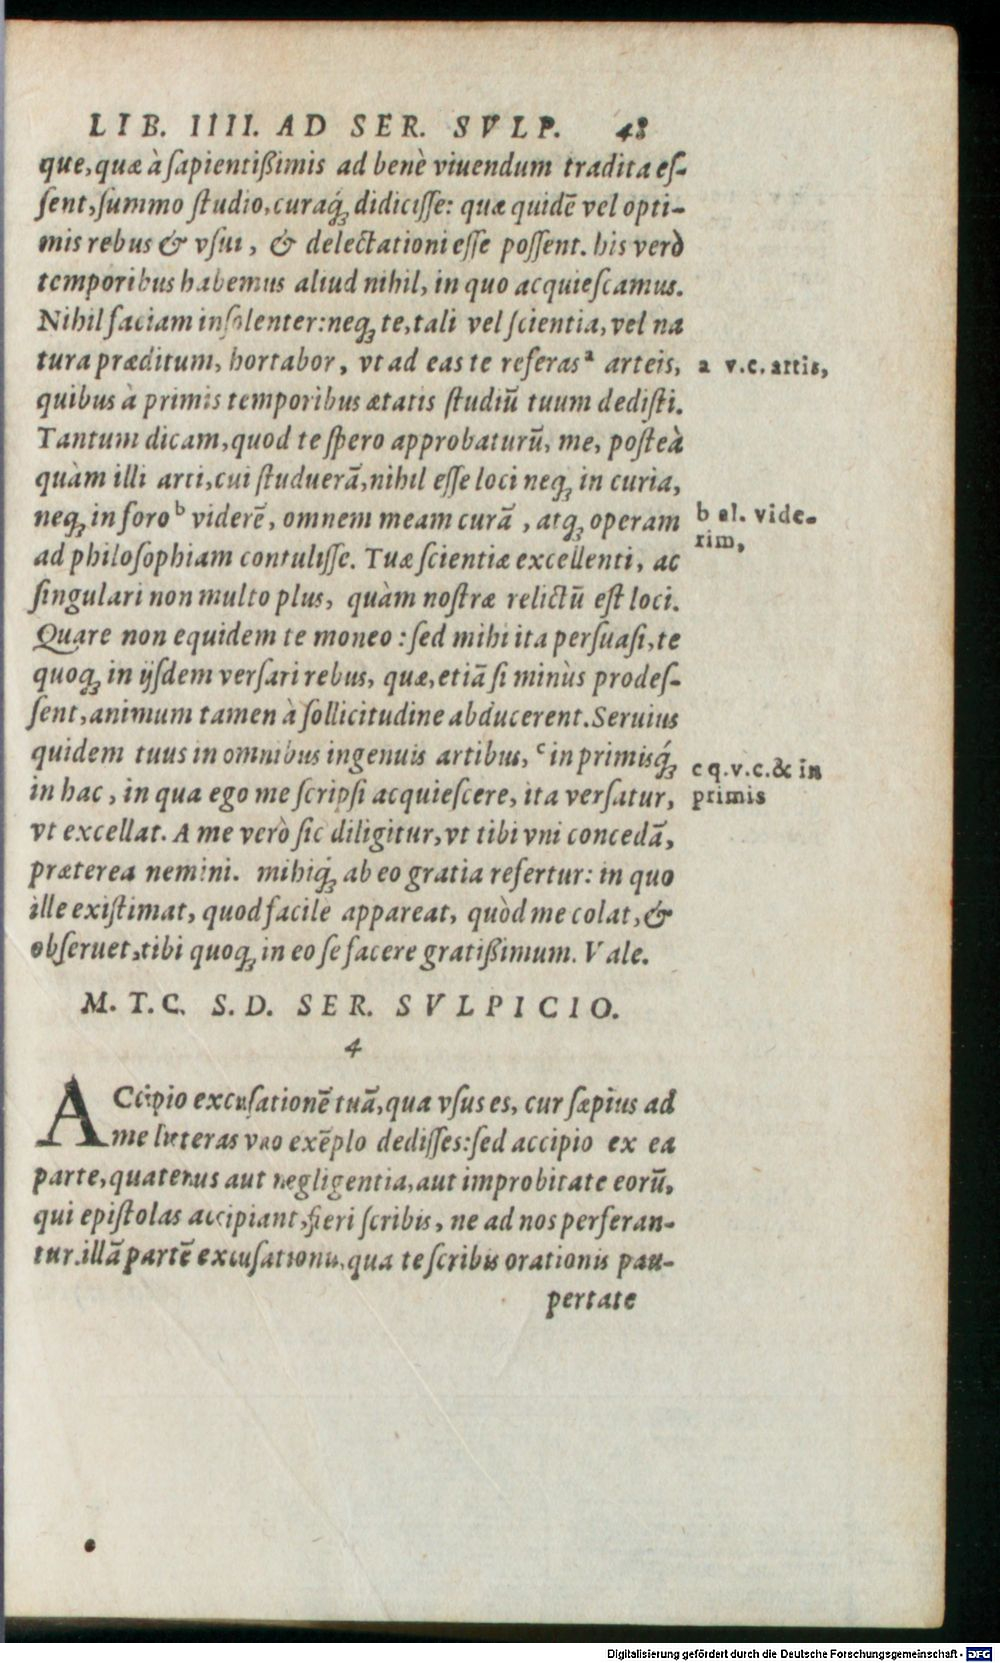 LIB. IIII. AD SER. SVLP. 48
que, quæ à ſapientißimis ad benè viuendum tradita eſ-
ſent, ſummo ſtudio, curaq́ꝫ didiciſſe: quæ quidē vel opti-
mis rebus & vſui, & delectationi eſſe poſſent. his verò
temporibus habemus aliud nihil, in quo acquieſcamus.
Nihil faciam inſolenter: neqꝫ te, tali vel ſcientia, vel na
tura præditum, hortabor, vt ad eas te referas ᵃ arteis,
a v.c. artis,
quibus à primis temporibus ætatis ſtudiū tuum dediſti.
Tantum dicam, quod te ſpero approbaturū, me, poſteà
quàm illi arti, cui ſtuduerā, nihil eſſe loci neqꝫ in curia,
neqꝫ in foro ᵇ viderē, omnem meam curā, atqꝫ operam
b al. vide-
rim,
ad philoſophiam contuliſſe. Tuæ ſcientiæ excellenti, ac
ſingulari non multo plus, quàm noſtræ relictū eſt loci.
Quare non equidem te moneo: ſed mihi ita perſuaſi, te
quoqꝫ in ijſdem verſari rebus, quæ, etiā ſi minùs prodeſ-
ſent, animum tamen à ſollicitudine abducerent. Seruius
quidem tuus in omnibus ingenuis artibus, ᶜ in primisq́ꝫ
c q.v.c. & in
primis
in hac, in qua ego me ſcripſi acquieſcere, ita verſatur,
vt excellat. A me verò ſic diligitur, vt tibi vni concedā,
præterea nemini. mihiq́ꝫ ab eo gratia refertur: in quo
ille exiſtimat, quod facile appareat, quòd me colat, &
obſeruet, tibi quoqꝫ in eo ſe facere gratißimum. Vale.
M. T. C. S. D. SER. SVLPICIO.
4
ACcipio excuſationē tuā, qua vſus es, cur ſæpius ad
me litteras vno exēplo dediſſes: ſed accipio ex ea
parte, quatenus aut negligentia, aut improbitate eorū,
qui epiſtolas accipiant, fieri ſcribis, ne ad nos perferan-
tur. illā partē excuſationis, qua te ſcribis orationis pau-
pertate
Digitalisierung gefördert durch die Deutsche Forschungsgemeinschaft - DFG